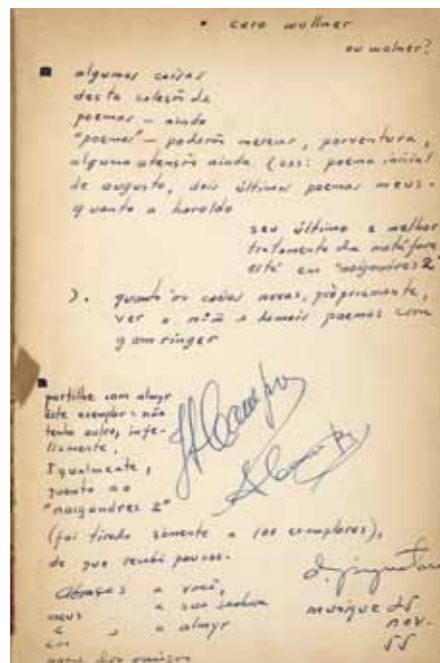 • caro wollner
ou wolner?
■ algumas coisas
desta coleção de
poemas — ainda
"poemas" — poderão merecer, porventura,
alguma atenção ainda (obs: poema inicial
de augusto, dois últimos poemas meus.
quanto a haroldo
seu último e melhor
tratamento da metáfora
está em "noigandres 2"
). quanto às coisas novas, pròpriamente,
ver a minha e demais poemas com
gomringer
■
partilhe com almyr
este exemplar: não
tenho outro, infe-
lizmente.
Igualmente,
quanto ao
"noigandres 2"
(foi tirado sòmente a 100 exemplares),
de que recebi poucos.
abraços a você,
meus a sua senhora
e a almyr
em
nome dos amigos
HCampos
d. pignatari
munique 25
nov.
55